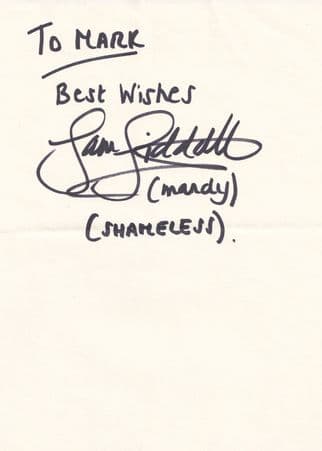 To MARK
Best Wishes
Sam Siddall
(mandy)
(SHAMELESS).